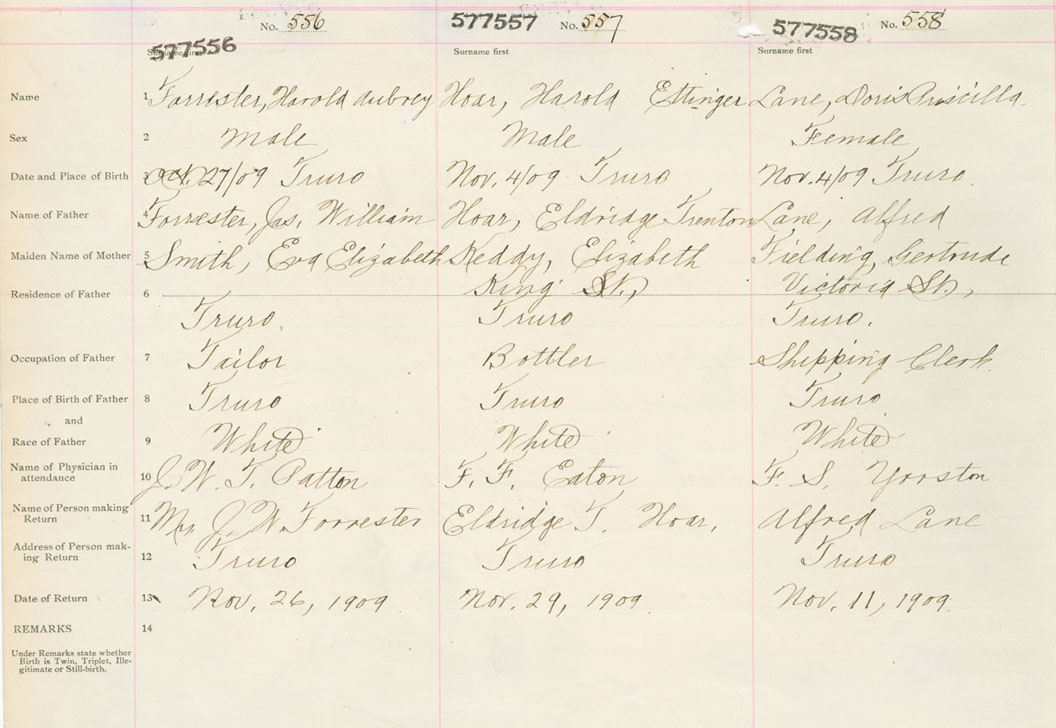 No. 556 577557 No. 557 577558 No. 558
577556
Surname first Surname first Surname first
Name 1 Forrester, Harold Aubrey Hoar, Harold Ettinger Lane, Doris Priscilla.
Sex 2 Male Male Female
Date and Place of Birth 3 Oct. 27/09 Truro Nov. 4/09 Truro Nov. 4/09 Truro.
Name of Father 4 Forrester, Jas. William Hoar, Eldridge Trenton Lane, Alfred
Maiden Name of Mother 5 Smith, Eva Elizabeth Keddy, Elizabeth Fielding, Gertrude
King St., Victoria St.,
Residence of Father 6
Truro. Truro Truro.
Occupation of Father 7 Tailor Bottler Shipping Clerk.
Place of Birth of Father 8 Truro Truro Truro
and
Race of Father 9 White White White
Name of Physician in
attendance 10 J. W. T. Patton F. F. Eaton F. S. Yorston
Name of Person making
Return 11 Mrs J. W. Forrester Eldridge T. Hoar, Alfred Lane
Address of Person mak-
ing Return 12 Truro Truro Truro
Date of Return 13 Nov. 26, 1909. Nov. 29, 1909. Nov. 11, 1909.
REMARKS 14
Under Remarks state whether
Birth is Twin, Triplet, Ille-
gitimate or Still-birth.